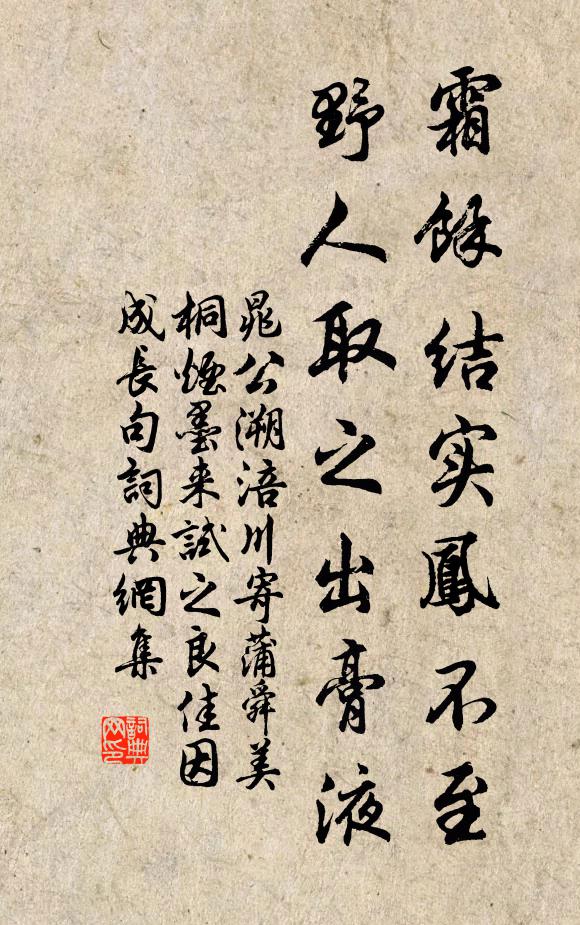 霜餘结实鳳不至
野人取之出膏液
晁公溯涪川寄蒲舜美
桐煙墨来試之良佳因
成長句詞典網集
詞典
网印